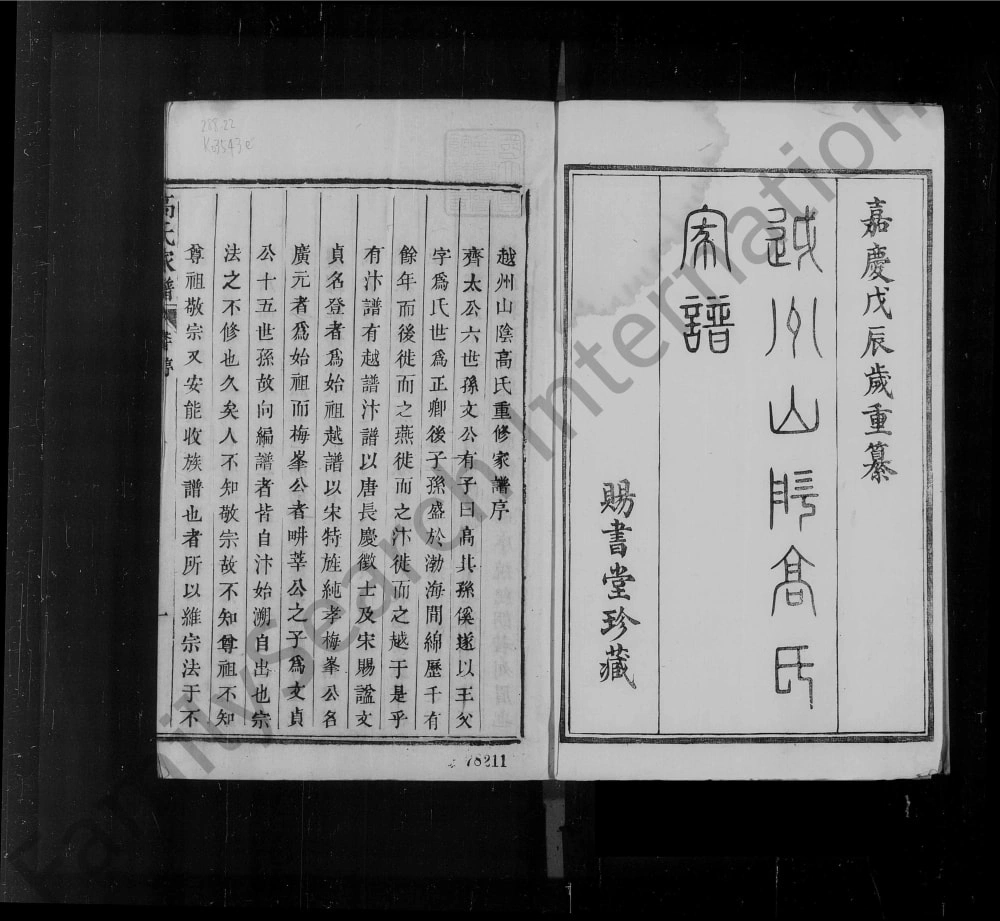 嘉慶戊辰歲重纂
越州山陰高氏
家譜
賜書堂珍藏
越州山陰高氏重修家譜序
齊太公六世孫文公有子曰高其孫傒遂以王父
字爲氏世爲正卿後子孫盛於渤海間綿歷千有
餘年而後徙而之燕徙而之汴徙而之越于是乎
有汴譜有越譜汴譜以唐長慶徵士及宋賜諡文
貞名登者爲始祖越譜以宋特旌純孝梅峯公名
廣元者爲始祖而梅峯公者畊莘公之子爲文貞
公十五世孫故向編譜者皆自汴始溯自出也宗
法之不修也久矣人不知敬宗故不知尊祖不知
尊祖敬宗又安能收族譜也者所以維宗法于不
高氏家譜
一
78211
FamilySearch International